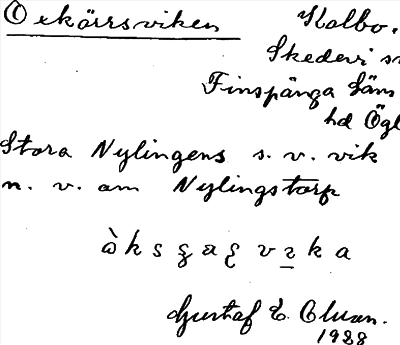 Oxkärrsviken
Kolbo.
Skedevi sn
Finspånga läns
hd Ögl
Stora Nylingens s. v. vik
n. v. om Nylingstorp
Gustaf E.
1928